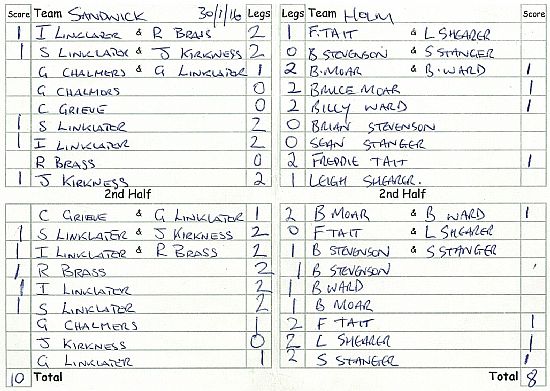 Score Team SANDWICK 30/1/16 Legs Legs Team HOLM Score
1 I LINKLATER & R BRASS 2 1 F. TAIT & L SHEARER
1 S LINKLATER & J KIRKNESS 2 0 B STEVENSON & S STANGER
G CHALMERS & G LINKLATER 1 2 B. MOAR & B. WARD 1
G CHALMERS 0 2 BRUCE MOAR 1
C GRIEVE 0 2 BILLY WARD 1
1 S LINKLATER 2 0 BRIAN STEVENSON
1 I LINKLATER 2 0 SEAN STANGER
R BRASS 0 2 FREDDIE TAIT 1
1 J KIRKNESS 2 1 LEIGH SHEARER.
2nd Half 2nd Half
C GRIEVE & G LINKLATER 1 2 B MOAR & B WARD 1
1 S LINKLATER & J KIRKNESS 2 0 F TAIT & L SHEARER
1 I LINKLATER & R BRASS 2 1 B STEVENSON & S STANGER
1 R BRASS 2 1 B STEVENSON
1 I LINKLATER 2 1 B WARD
1 S LINKLATER 2 1 B MOAR
G CHALMERS 1 2 F TAIT 1
J KIRKNESS 0 2 L SHEARER 1
G LINKLATER 1 2 S STANGER 1
10 Total Total 8